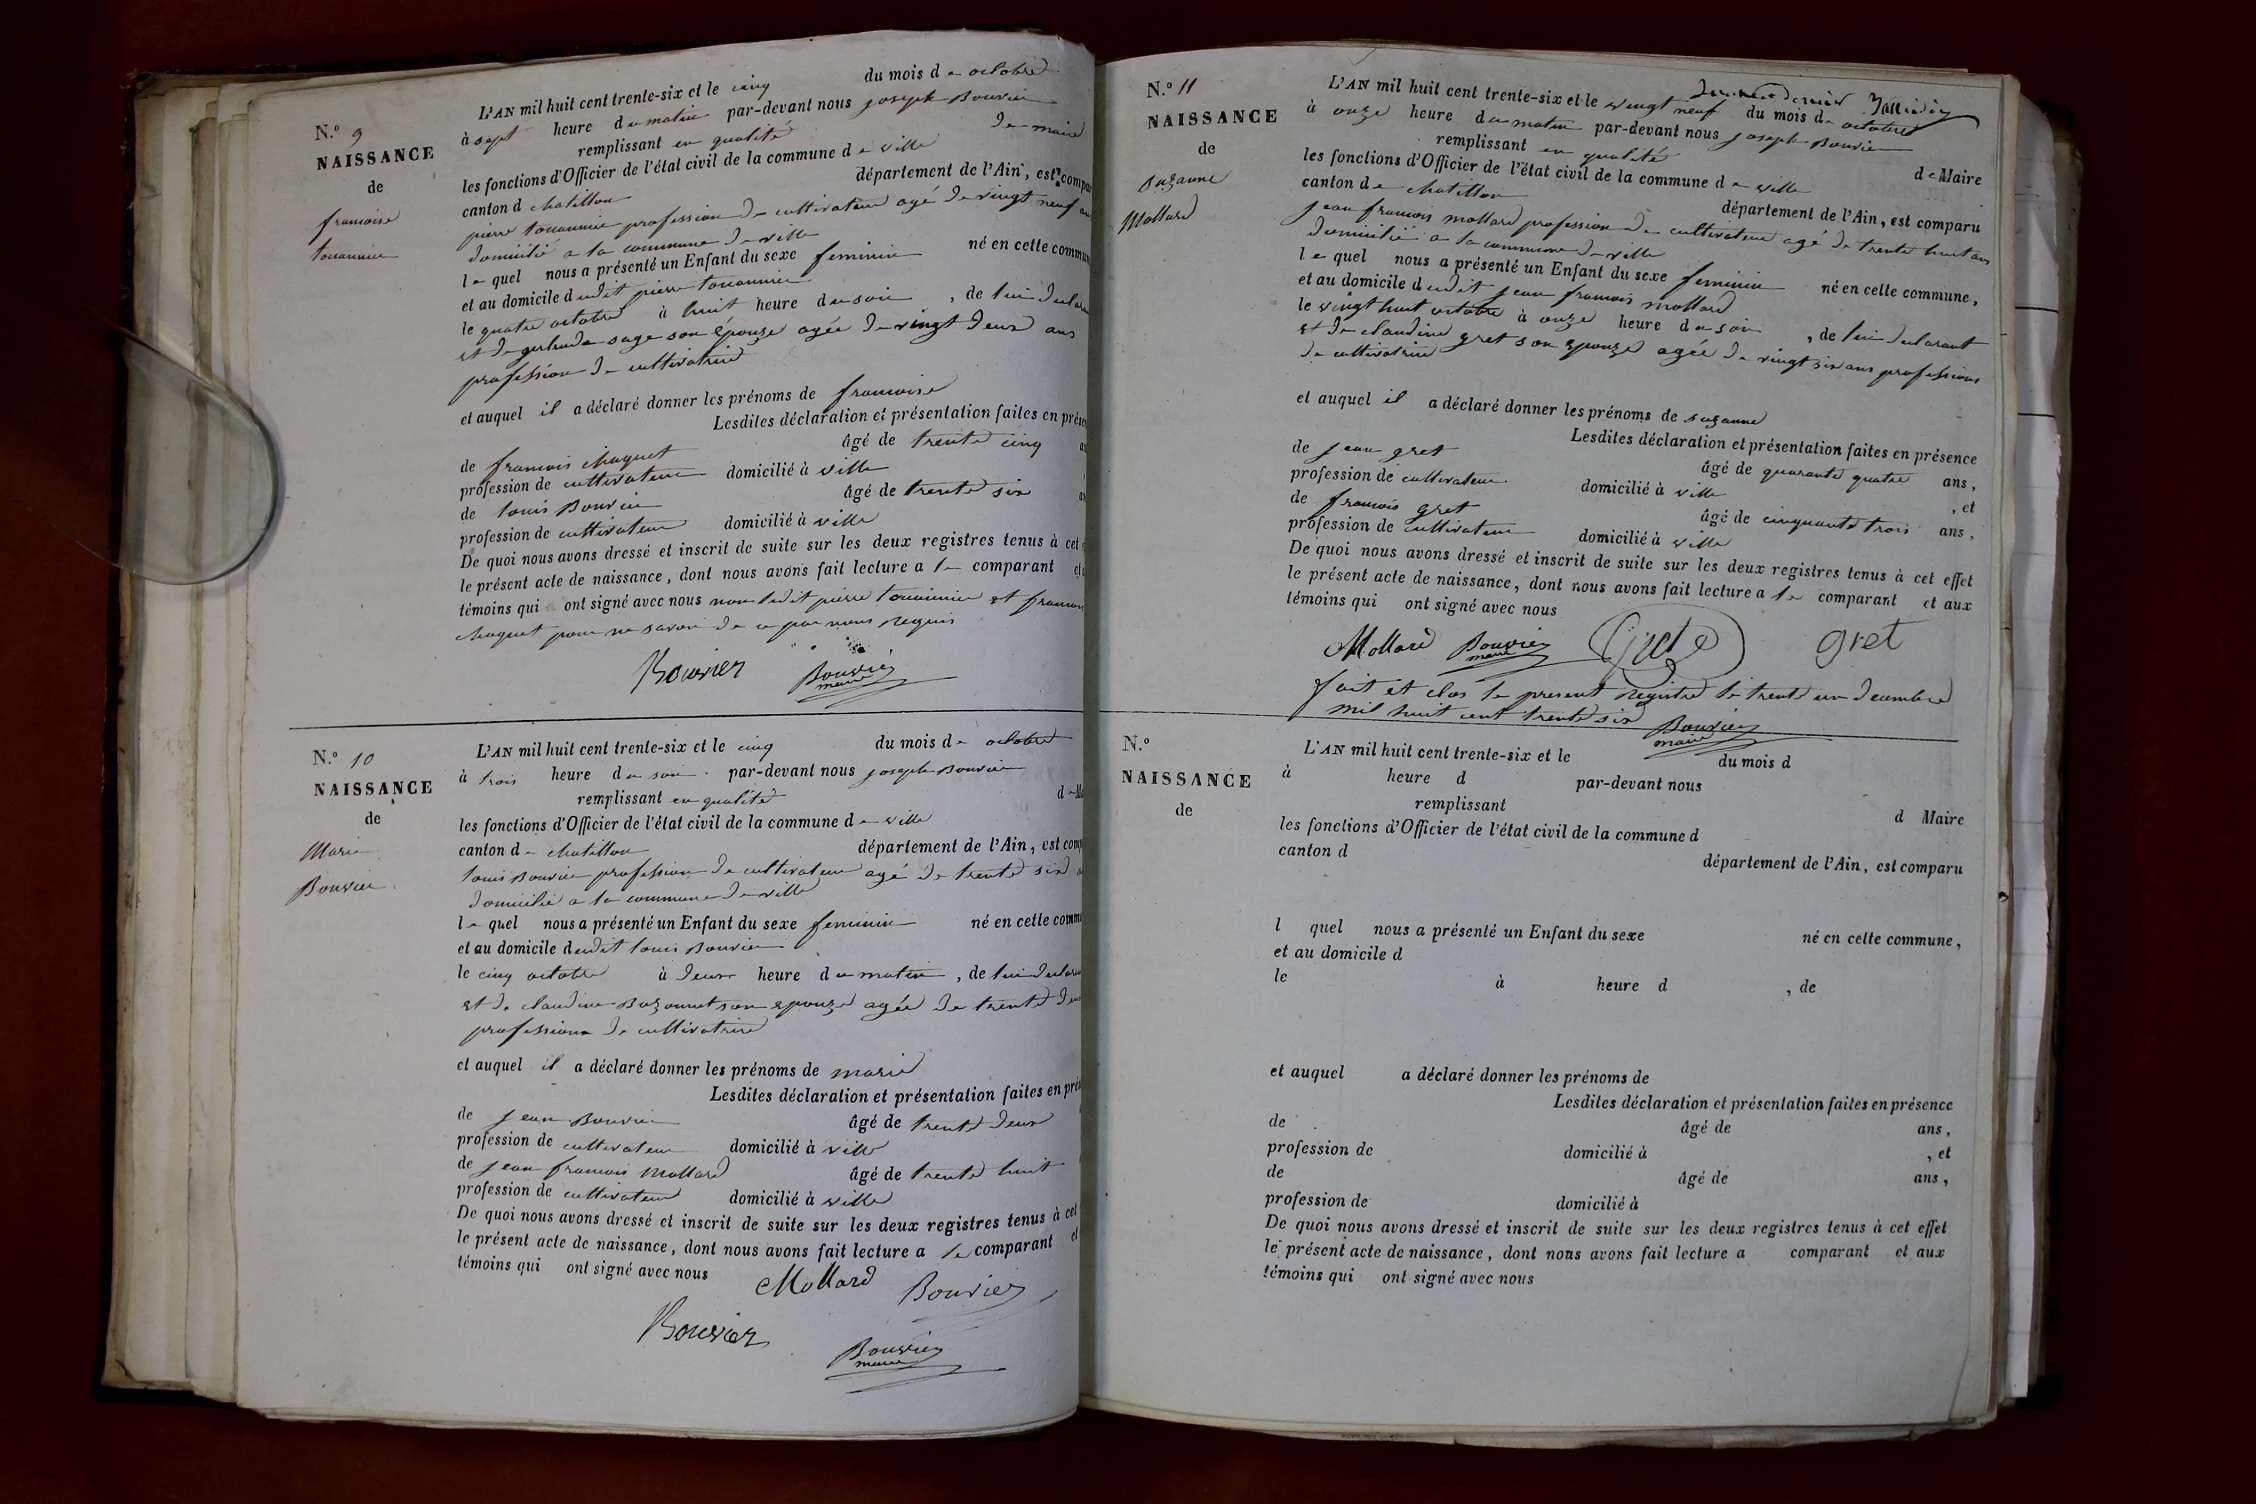 N.° 9
NAISSANCE
de
francoise
touannier
L'AN mil huit cent trente-six et le cinq du mois de octobre
à sept heure du matin par-devant nous joseph Bouvier
remplissant en qualité de maire
les fonctions d'Officier de l'état civil de la commune de ville
canton d chatillon département de l'Ain, est compar
pierre touannier profession de cultivateur agé de vingt neuf an
domicilié a la commune de ville
le quel nous a présenté un Enfant du sexe feminin né en cette commu
et au domicile dudit pierre touannier
le quatre octobre à huit heure du soir, de lui declara
et de gertrude sage son épouze agée de vingt deux ans
profession de cultivatrice
et auquel il a déclaré donner les prénoms de francoise
Lesdites déclaration et présentation faites en prése
de francois chaquet âgé de trente cinq an
profession de cultivateur domicilié à ville
de louis Bouvier âgé de trente six an
profession de cultivateur domicilié à ville
De quoi nous avons dressé et inscrit de suite sur les deux registres tenus à cet
le présent acte de naissance, dont nous avons fait lecture a le comparant et
témoins qui ont signé avec nous non ledit pierre touannier et francois
chaquet pour ne savoir de ce par nous requis
Bouvier Bouvier
maire
N.° 10
NAISSANCE
de
Marie
Bouvier
L'AN mil huit cent trente-six et le cinq du mois de octobre
à trois heure du soir par-devant nous joseph Bouvier
remplissant en qualité de Ma
les fonctions d'Officier de l'état civil de la commune de ville
canton de chatillon département de l'Ain, est comp
louis Bouvier profession de cultivateur agé de trente six a
domicilié a la commune de ville
le quel nous a présenté un Enfant du sexe feminin né en cette comm
et au domicile dudit louis Bouvier
le cinq octobre à deux heure du matin, de lui declara
et de claudine Bozonnet son epouze agée de trente deu
profession de cultivatrice
et auquel il a déclaré donner les prénoms de marie
Lesdites déclaration et présentation faites en pré
de jean Bouvier âgé de trente deux
profession de cultivateur domicilié à ville
de jean francois Mollard âgé de trente huit
profession de cultivateur domicilié à ville
De quoi nous avons dressé et inscrit de suite sur les deux registres tenus à cet
le présent acte de naissance, dont nous avons fait lecture a le comparant et
témoins qui ont signé avec nous Mollard Bouvier
Bouvier Bouvier
maire
N.° 11
NAISSANCE
de
suzanne
Mollard
L'AN mil huit cent trente-six et le vingt neuf du mois de octobre
à onze heure du matin par-devant nous joseph Bouvier
remplissant en qualité de Maire
les fonctions d'Officier de l'état civil de la commune de ville
canton de chatillon département de l'Ain, est comparu
jean francois mollard profession de cultivateur agé de trente huit ans
domicilié a la commune de ville
le quel nous a présenté un Enfant du sexe feminin né en cette commune,
et au domicile dudit jean francois mollard
le vingt huit octobre à onze heure du soir, de lui declarant
et de claudine gret son epouze agée de vingt six ans profession
de cultivatrice
et auquel il a déclaré donner les prénoms de suzanne
Lesdites déclaration et présentation faites en présence
de jean gret âgé de quarante quatre ans,
profession de cultivateur domicilié à ville, et
de francois gret âgé de cinquante trois ans,
profession de cultivateur domicilié à ville
De quoi nous avons dressé et inscrit de suite sur les deux registres tenus à cet effet
le présent acte de naissance, dont nous avons fait lecture a le comparant et aux
témoins qui ont signé avec nous
Mollard Bouvier gret
maire
fait et clos le present registre le trente un decembre
mil huit cent trente six Bouvier
maire
N.°
NAISSANCE
de
L'AN mil huit cent trente-six et le du mois d
à heure d par-devant nous
remplissant d Maire
les fonctions d'Officier de l'état civil de la commune d
canton d département de l'Ain, est comparu
l quel nous a présenté un Enfant du sexe né en cette commune,
et au domicile d
le à heure d , de
et auquel a déclaré donner les prénoms de
Lesdites déclaration et présentation faites en présence
de âgé de ans,
profession de domicilié à , et
de âgé de ans,
profession de domicilié à
De quoi nous avons dressé et inscrit de suite sur les deux registres tenus à cet effet
le présent acte de naissance, dont nous avons fait lecture a comparant et aux
témoins qui ont signé avec nous